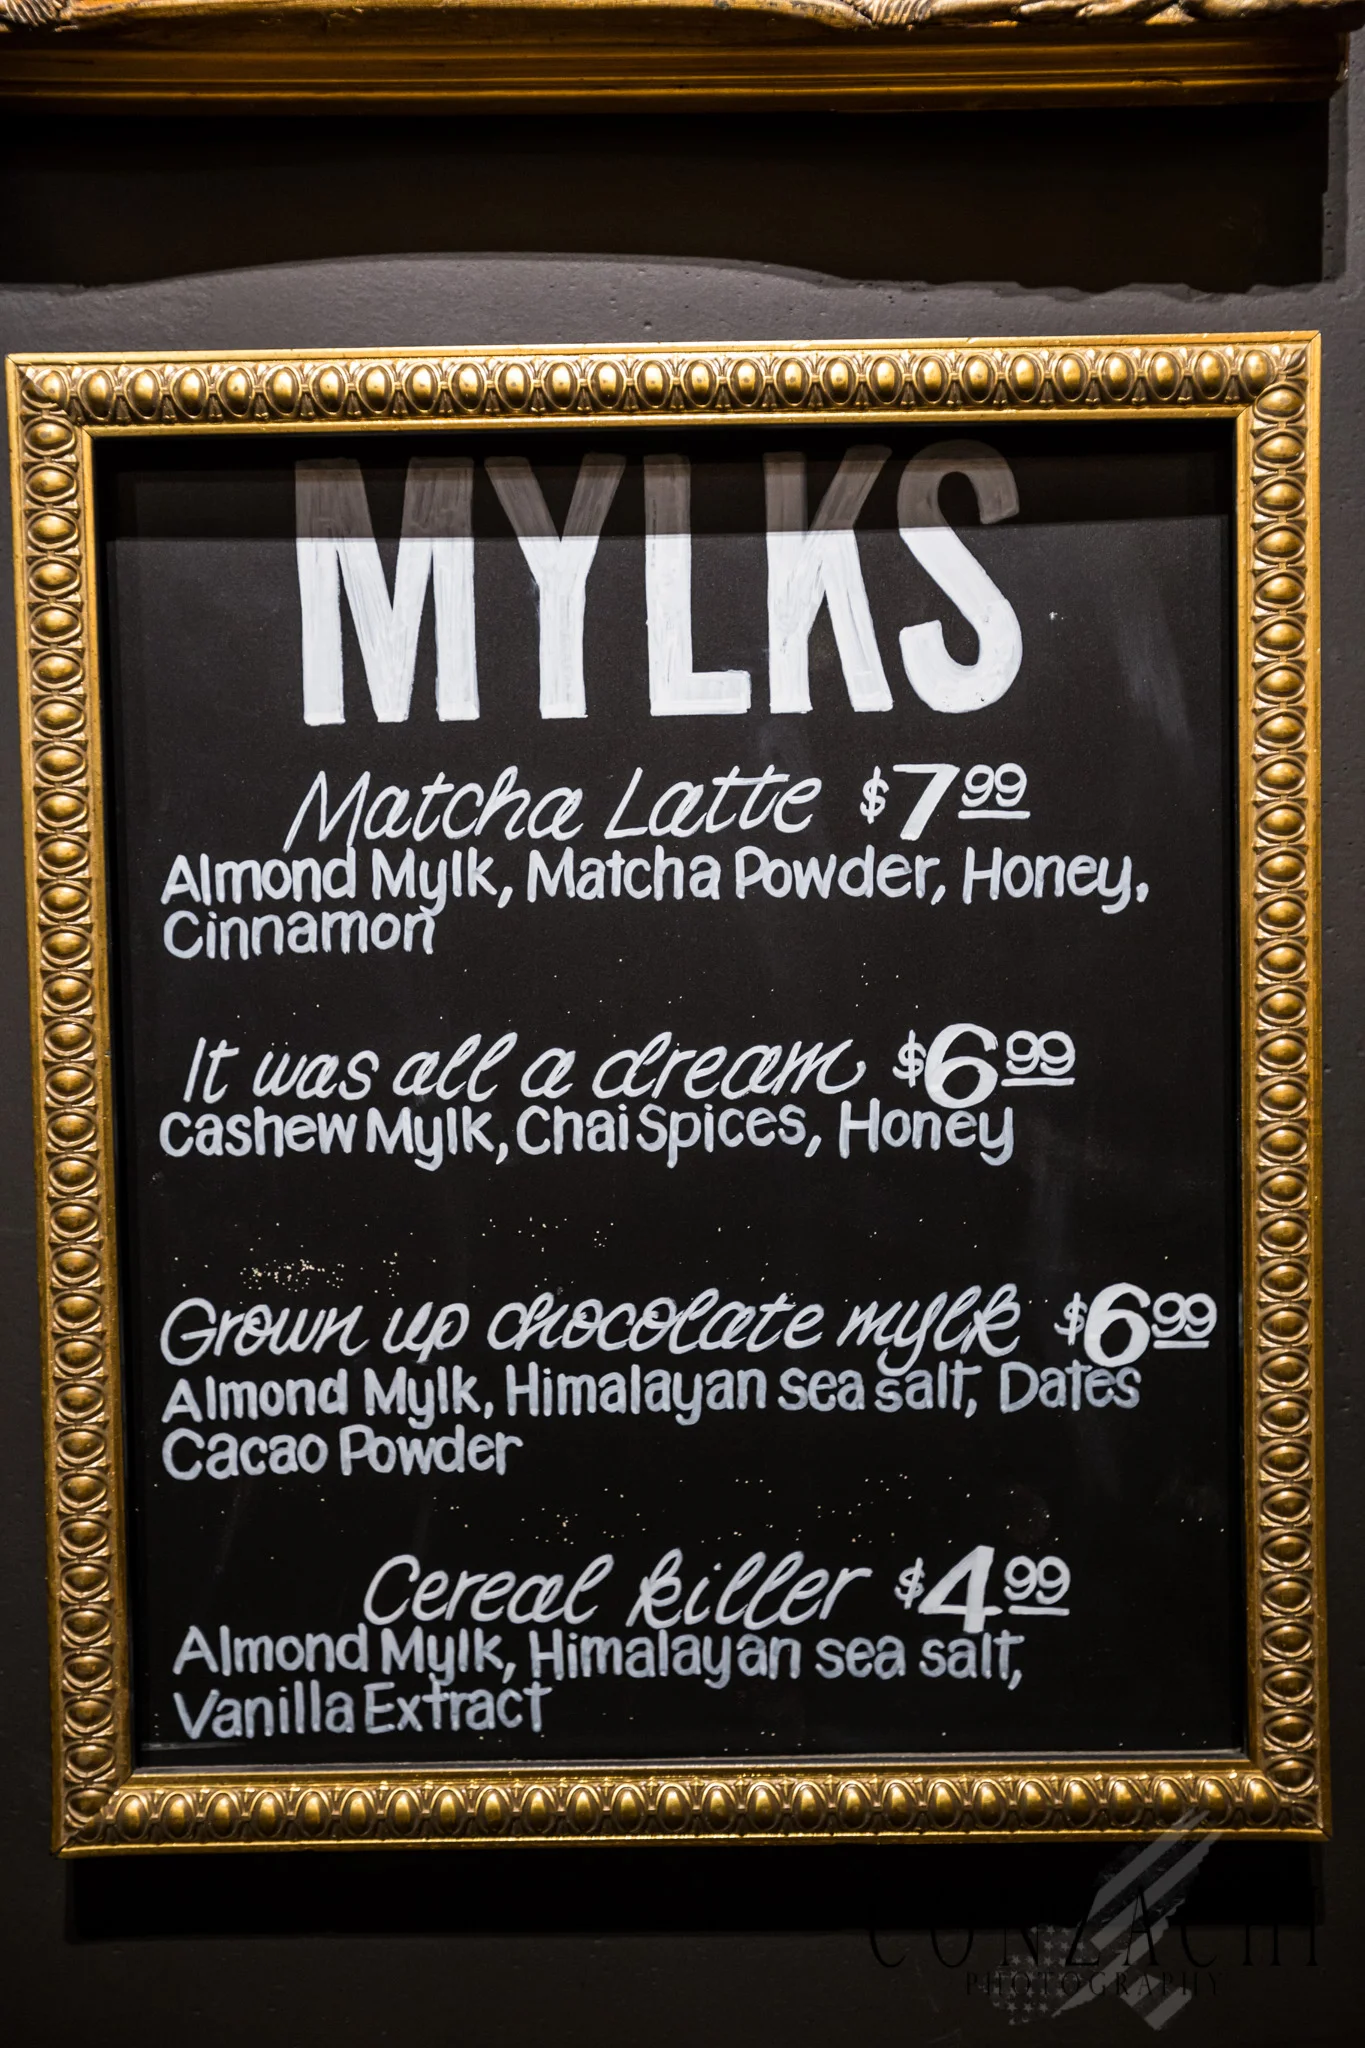 MYLKS
Matcha Latte $7.99
Almond Mylk, Matcha Powder, Honey,
Cinnamon
It was all a dream $6.99
Cashew Mylk, Chai Spices, Honey
Grown up chocolate mylk $6.99
Almond Mylk, Himalayan sea salt, Dates
Cacao Powder
Cereal killer $4.99
Almond Mylk, Himalayan sea salt,
Vanilla Extract
CONZACHI
PHOTOGRAPHY